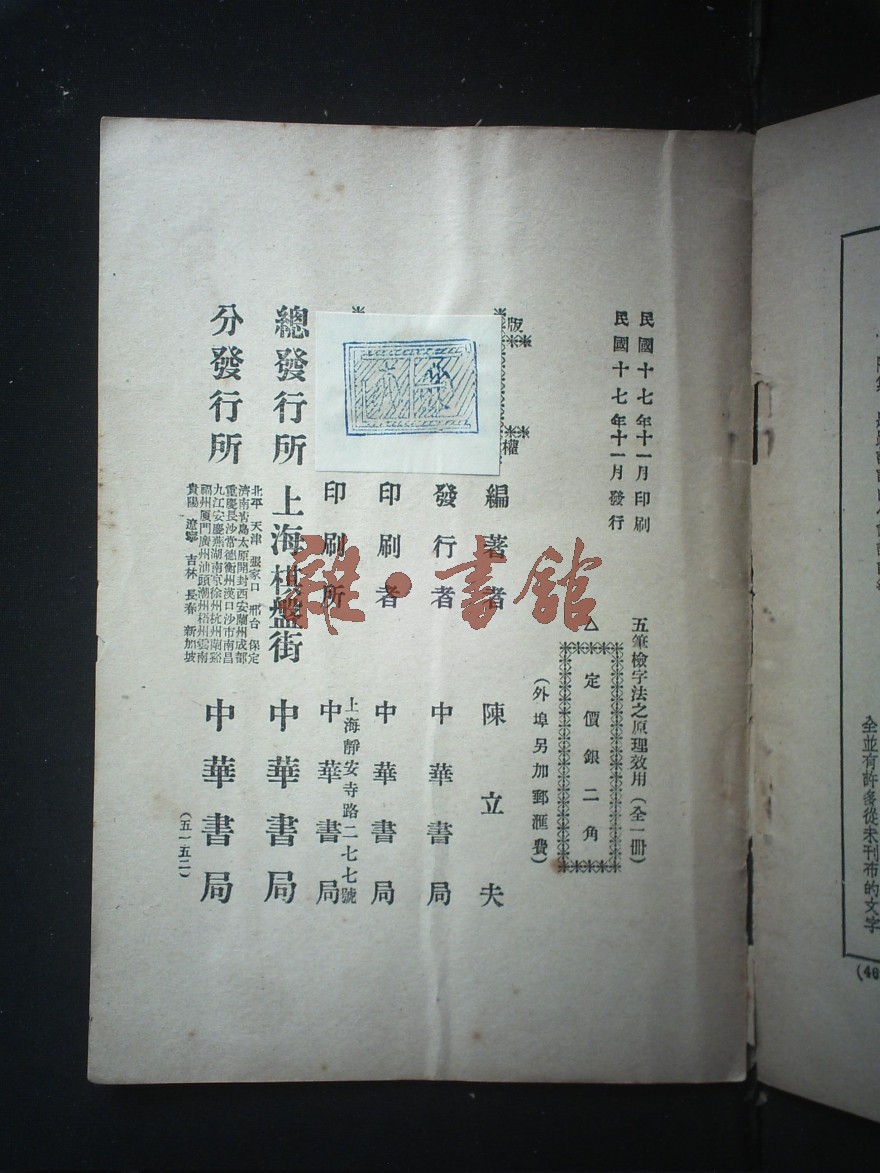 民國十七年十一月印刷
民國十七年十一月發行
五筆檢字法之原理效用（全一冊）
定價銀二角
（外埠另加郵滙費）
版
權
編著者 陳立夫
發行者 中華書局
印刷者 中華書局
上海靜安寺路二七七號
印刷所 中華書局
總發行所 上海棋盤街 中華書局
分發行所
北平 天津 張家口 邢台 保定
濟南青島太原開封西安蘭州成都
重慶長沙常德衡州漢口沙市南昌
九江安慶蕪湖南京徐州杭州蘭谿
福州厦門廣州汕頭潮州梧州雲南
貴陽 遼寧 吉林 長春 新加坡
中華書局
（五一五二）
雜·書館
全並有許多從未刊布的文字
(40